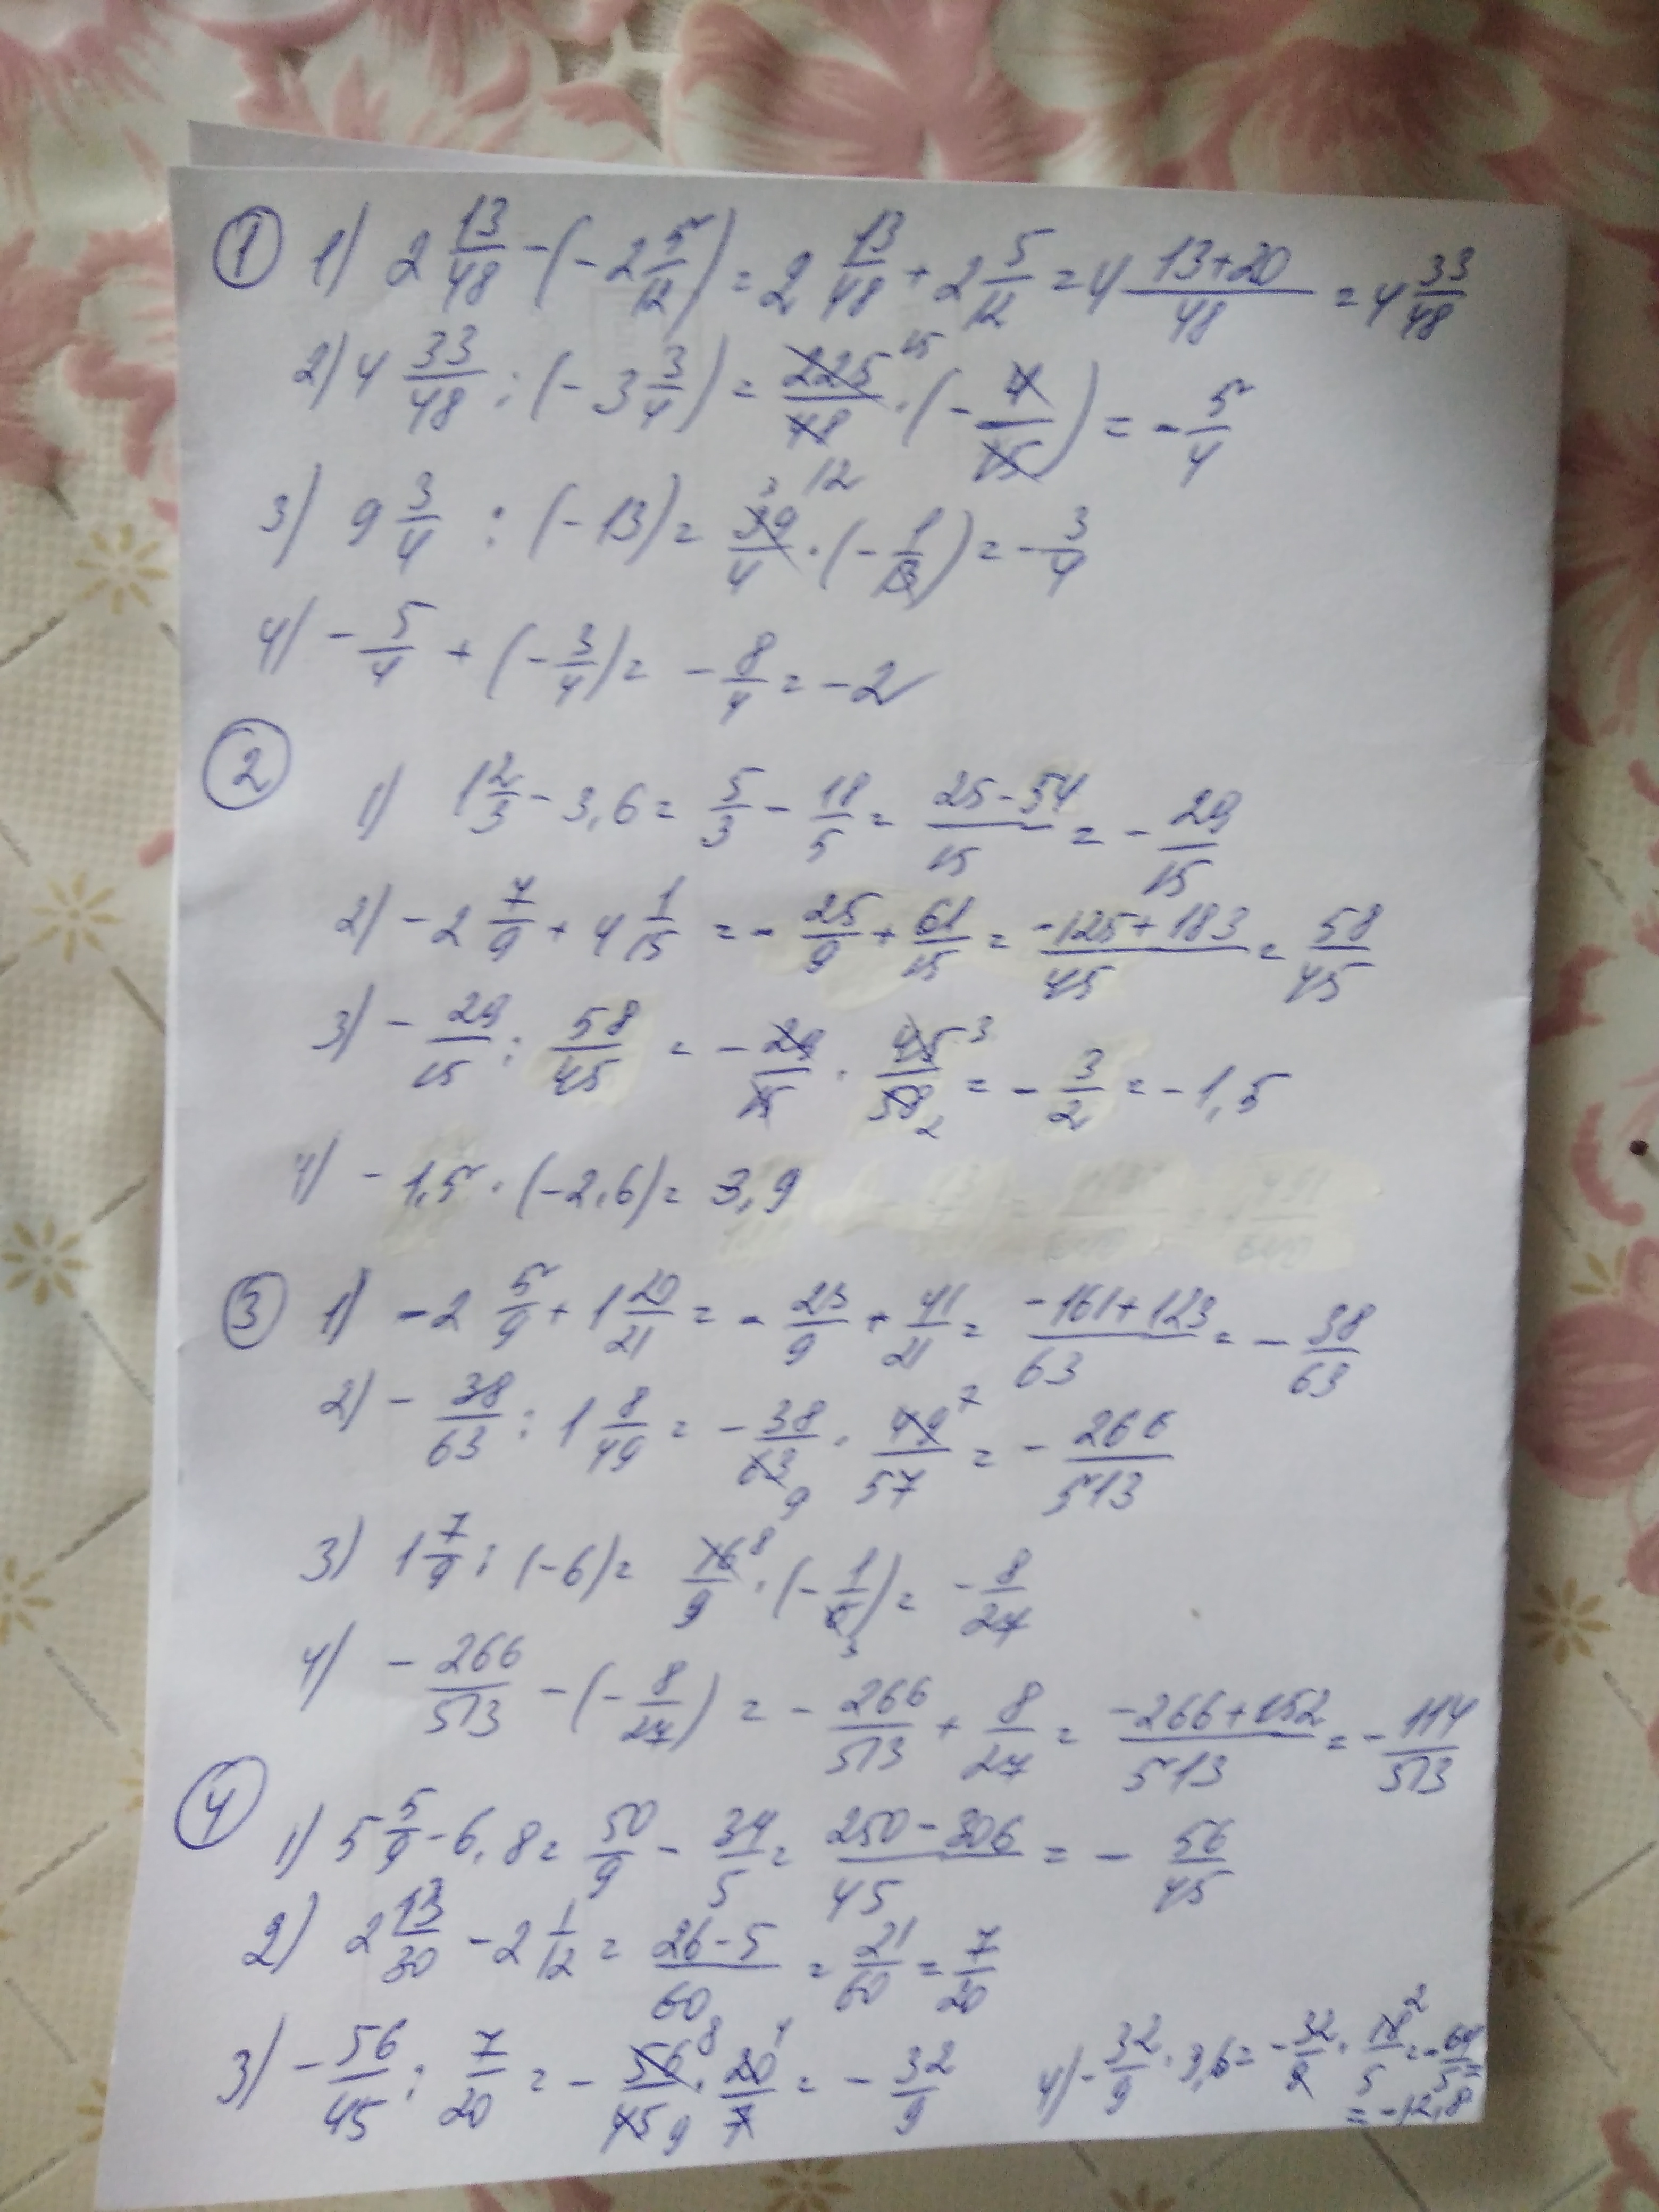 ① 1) 2 13/48 - (-2 5/12) = 2 13/48 + 2 5/12 = 4 (13+20)/48 = 4 33/48
2) 4 33/48 : (-3 3/4) = 225/48 15 · (-4/15) = -5/4
12
3) 9 3/4 : (-13) = 39/4 3 · (-1/13) = -3/4
4) -5/4 + (-3/4) = -8/4 = -2
②
1) 1 2/3 - 3,6 = 5/3 - 18/5 = (25-54)/15 = -29/15
2) -2 7/9 + 4 1/15 = -25/9 + 61/15 = (-125+183)/45 = 58/45
3) -29/15 : 58/45 = -29/15 · 45/58 3 2 = -3/2 = -1,5
4) -1,5 · (-2,6) = 3,9
③ 1) -2 5/9 + 1 20/21 = -23/9 + 41/21 = (-161+123)/63 = -38/63
2) -38/63 : 1 8/49 = -38/63 9 · 49/57 7 = -266/513
3) 1 7/9 : (-6) = 16/9 8 · (-1/6 3) = -8/27
4) -266/513 - (-8/27) = -266/513 + 8/27 = (-266+152)/513 = -114/513
④
1) 5 5/9 - 6,8 = 50/9 - 34/5 = (250-306)/45 = -56/45
2) 2 13/30 - 2 1/12 = (26-5)/60 = 21/60 = 7/20
3) -56/45 : 7/20 = -56/45 8 9 · 20/7 4 = -32/9
4) -32/9 · 3,6 = -32/9 · 18/5 2 = -64/5 =
= -12,8